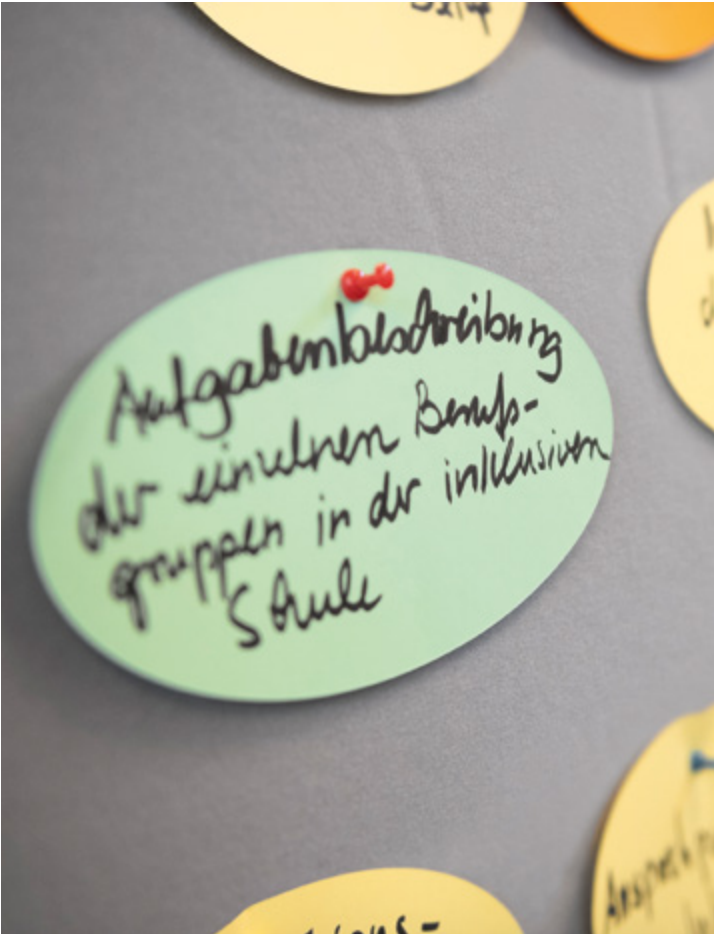 Aufgabenbeschreibung
der einzelnen Berufs-
gruppen in der inklusiven
Schule